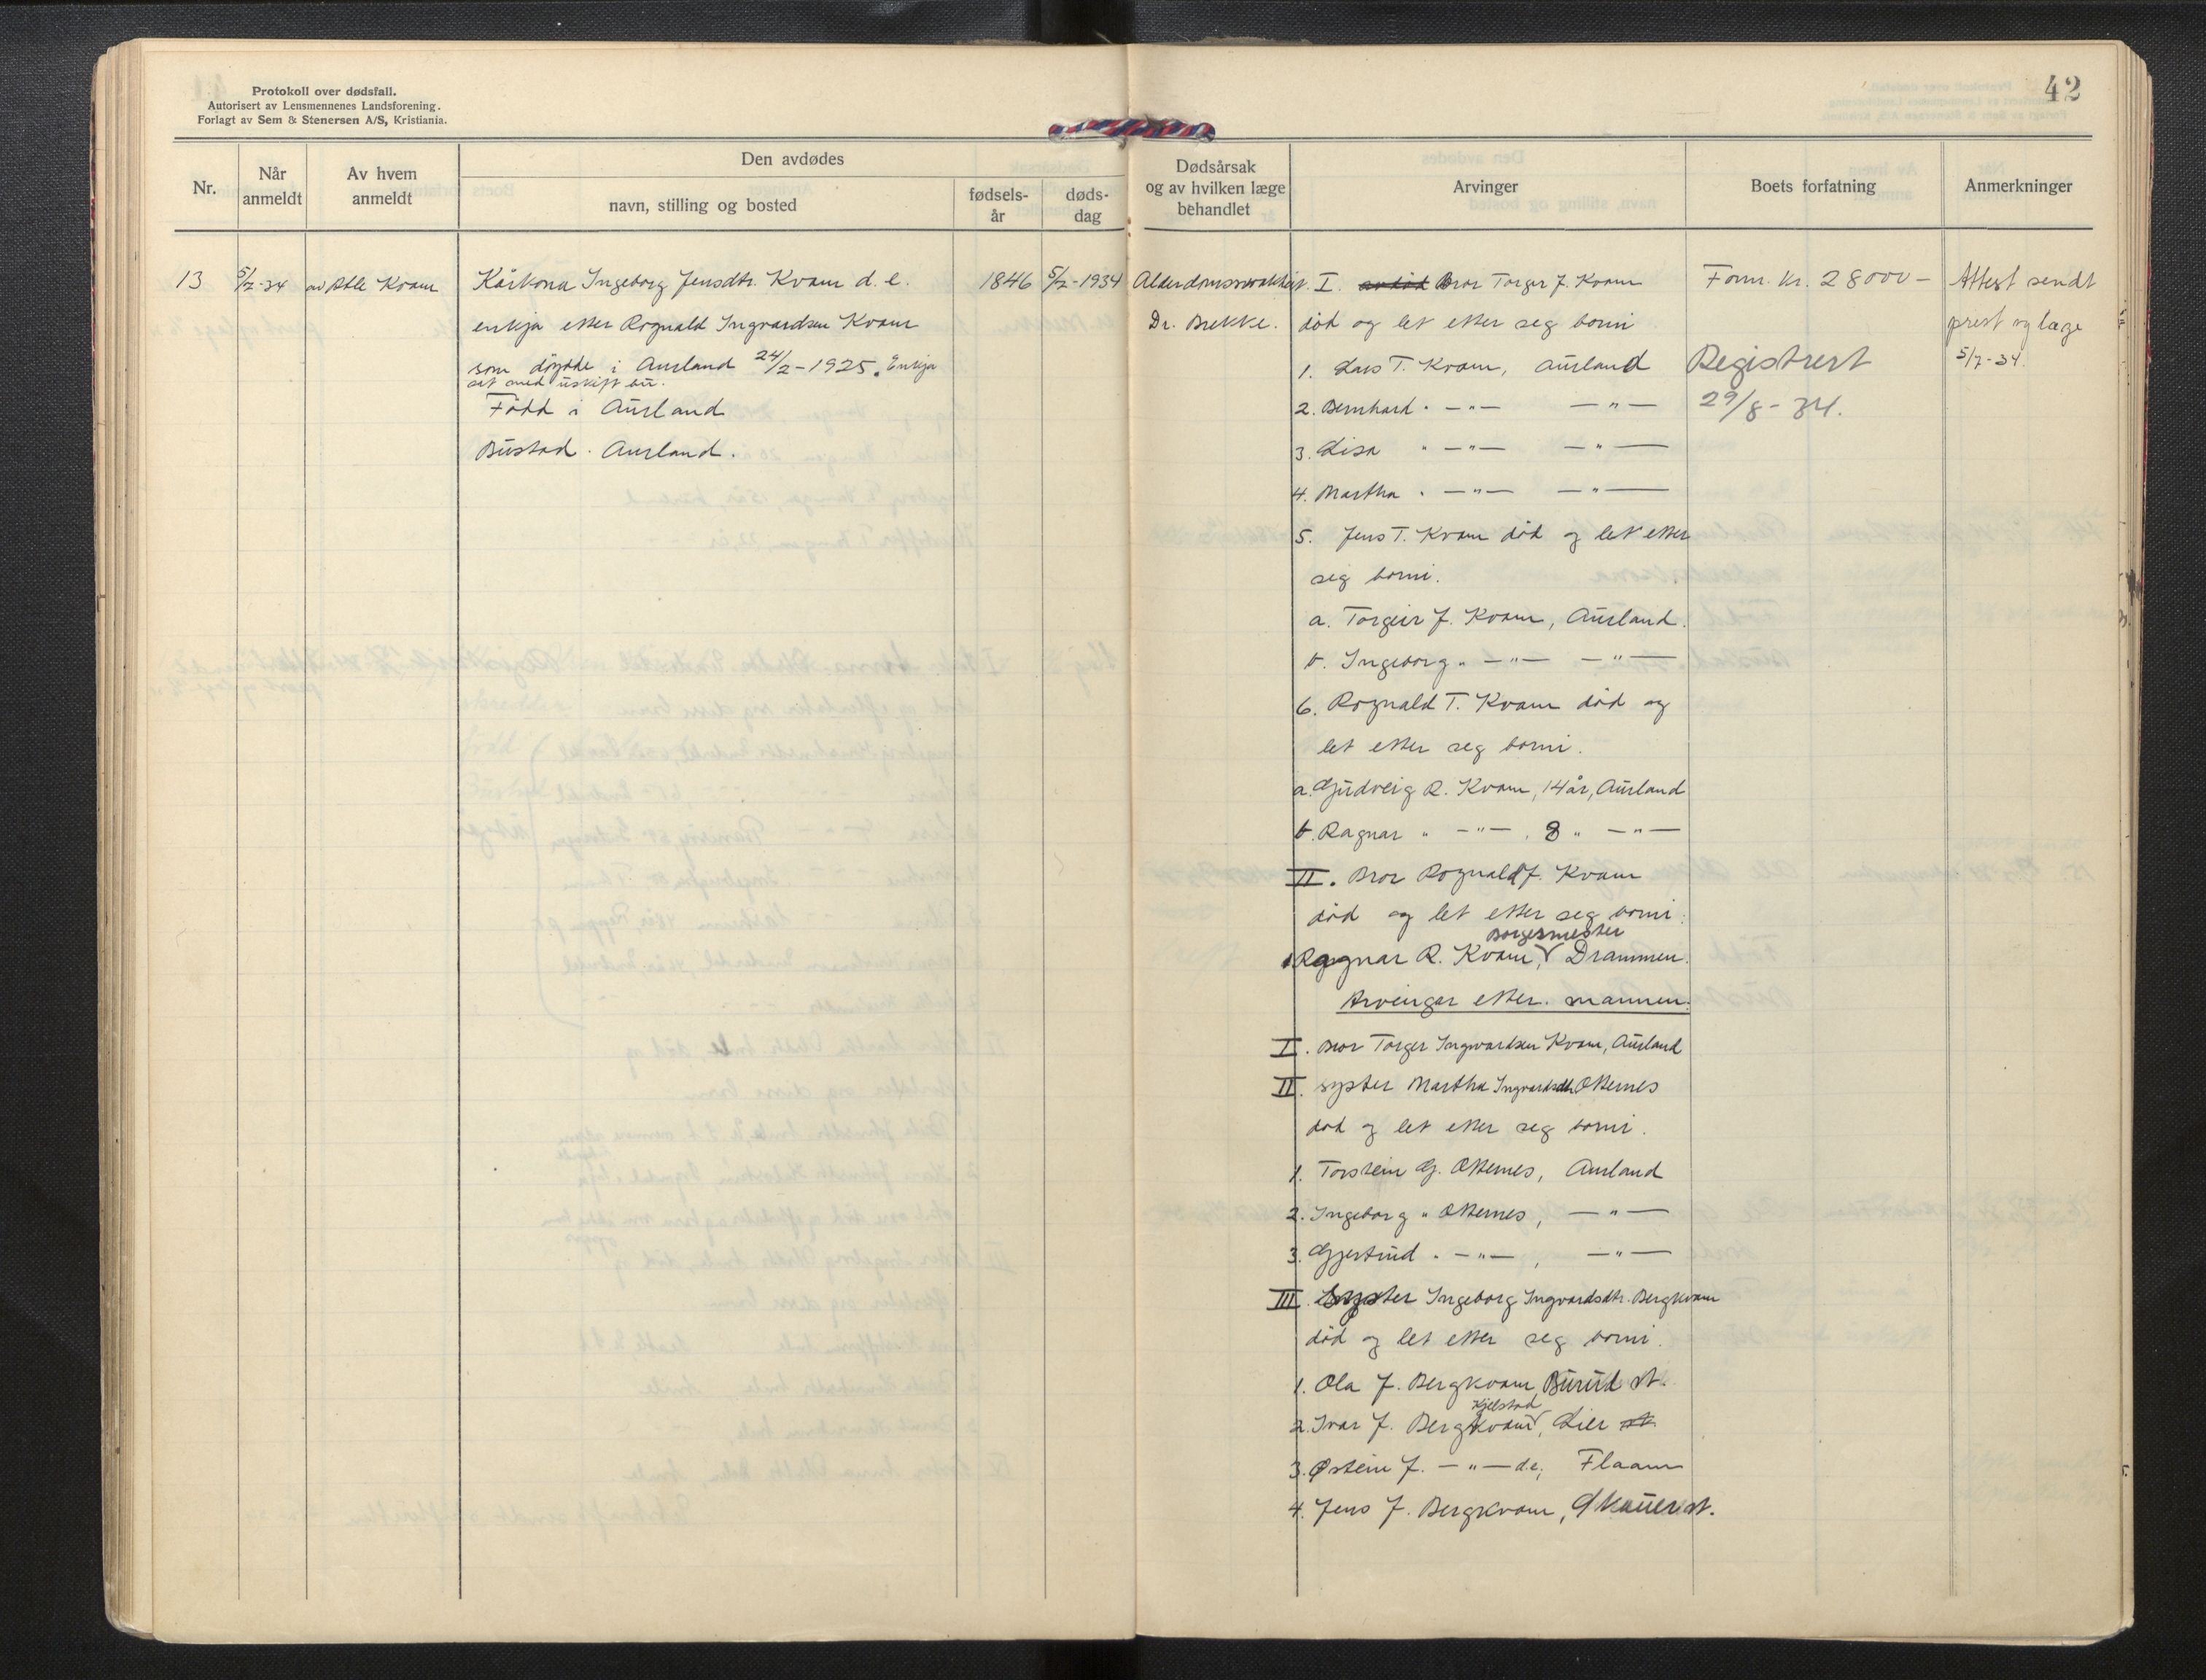 Protokoll over dødsfall.
Autorisert av Lensmennenes Landsforening.
Forlagt av Sem & Stenersen A/S, Kristiania.
42
Nr.
Når anmeldt
Av hvem anmeldt
Den avdødes
navn, stilling og bosted
fødsels-år
døds-dag
Dødsårsak og av hvilken læge behandlet
Arvinger
Boets forfatning
Anmerkninger
13
5/2-34
av Atle Kvam
Kårkona Ingeborg Jensdtr. Kvam d. e.
enkja etter Rognald Ingvardsen Kvam
som döydde i Aurland 24/2-1925. Enkja
set med uskift bu.
Född i Aurland
Bustad. Aurland.
1846
5/2-1934
Alderdomssvakheit.
Dr. Brekke.
I. avdöd Bror Torger J. Kvam
död og let etter seg borni
1. Lars T. Kvam, Aurland
2. Bernhard " —"— —"—
3. Lisa " —"— —"—
4. Martha " —"— —"—
5. Jens T. Kvam död og let etter
seg borni.
a. Torgeir J. Kvam, Aurland.
b. Ingeborg " —"— —"—
6. Rognald T. Kvam död og
let etter seg borni.
a. Gudveig R. Kvam, 14 år, Aurland
b. Ragnar " —"—, 8 " —"—
II. Bror Rognald J. Kvam
död og let etter seg borni.
Borgermester
1 Ragnar R. Kvam, V Drammen.
Arvingar etter mannen.
I. Bror Torger Ingvardsen Kvam, Aurland
II. syster Martha Ingvardsdtr. Otternes
död og let etter seg borni.
1. Torstein G. Otternes, Aurland
2. Ingeborg " Otternes, —"—
3. Gjertrud " —"—, —"—
III. Syster Ingeborg Ingvardsdtr. Bergkvam
död og let etter seg borni.
1. Ola J. Bergkvam, Burud st.
Kjelstad
2. Ivar J. Bergkvam V, Lier st.
3. Østein J. —"— d.e., Flaam
4. Jens J. Bergkvam, Skauer st.
Form. kr. 28000-
Registrert
29/8-34.
Attest sendt
prest og læge
5/7-34.